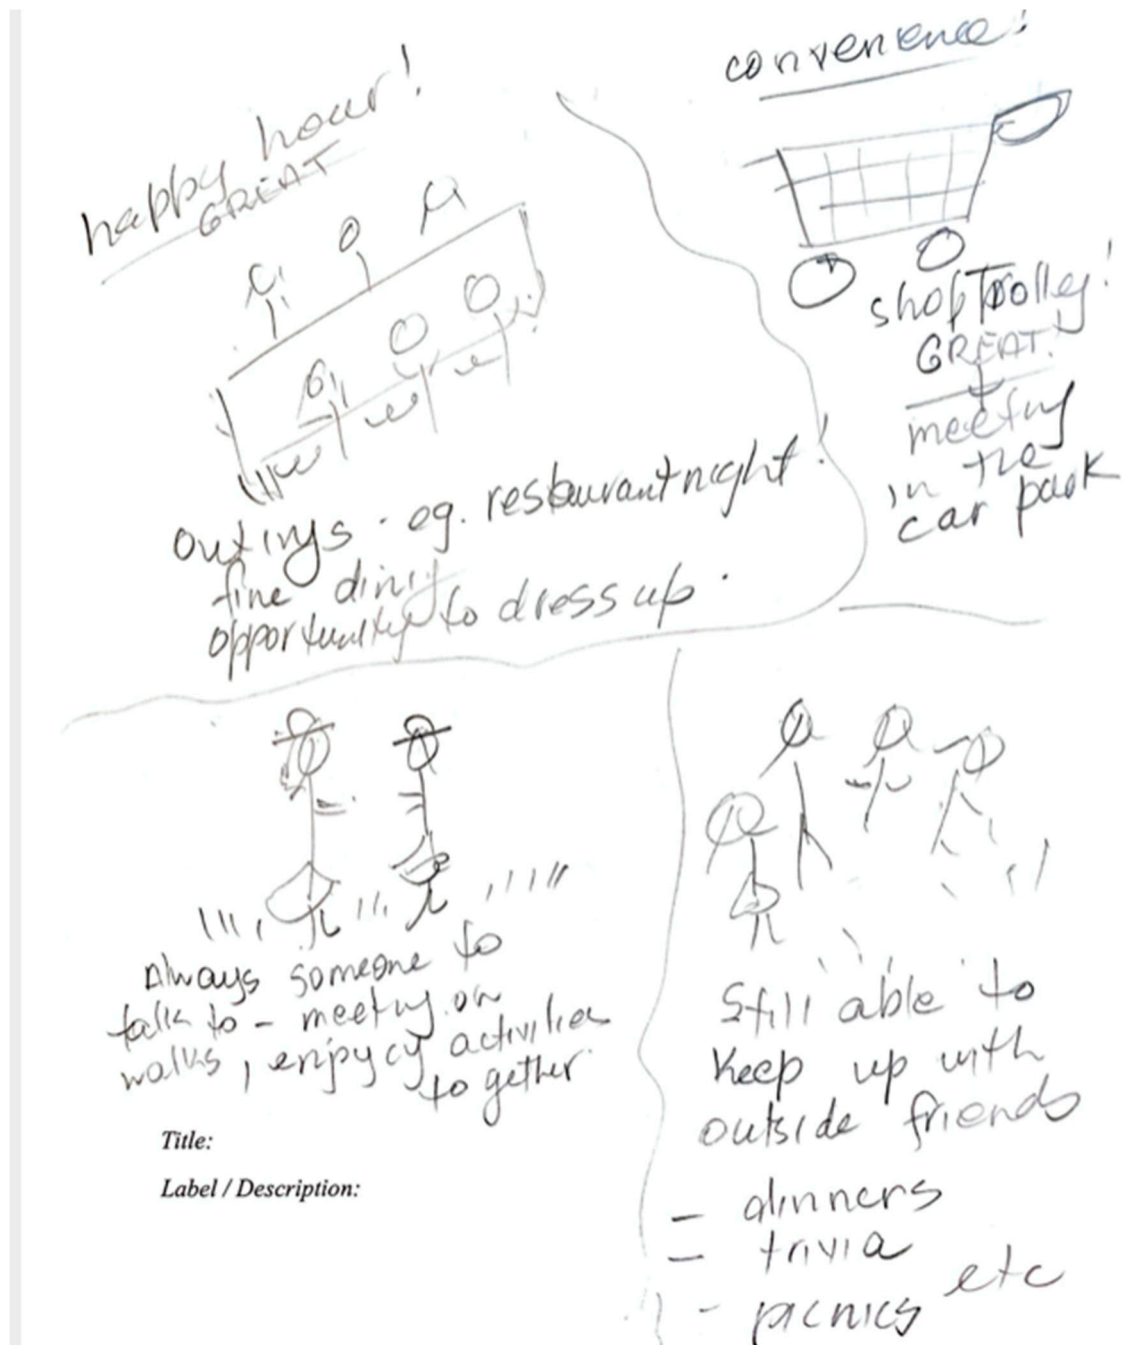 happy hour!
GREAT
outings - eg. restaurant night!
fine dining
opportunity to dress up.
convenience!
shop Trolley!
GREAT!
meeting
in the
car park
Always someone to
talk to - meeting on
walks, enjoy activities
together.
Title:
Label / Description:
Still able to
keep up with
outside friends
- dinners
- trivia
- picnics etc